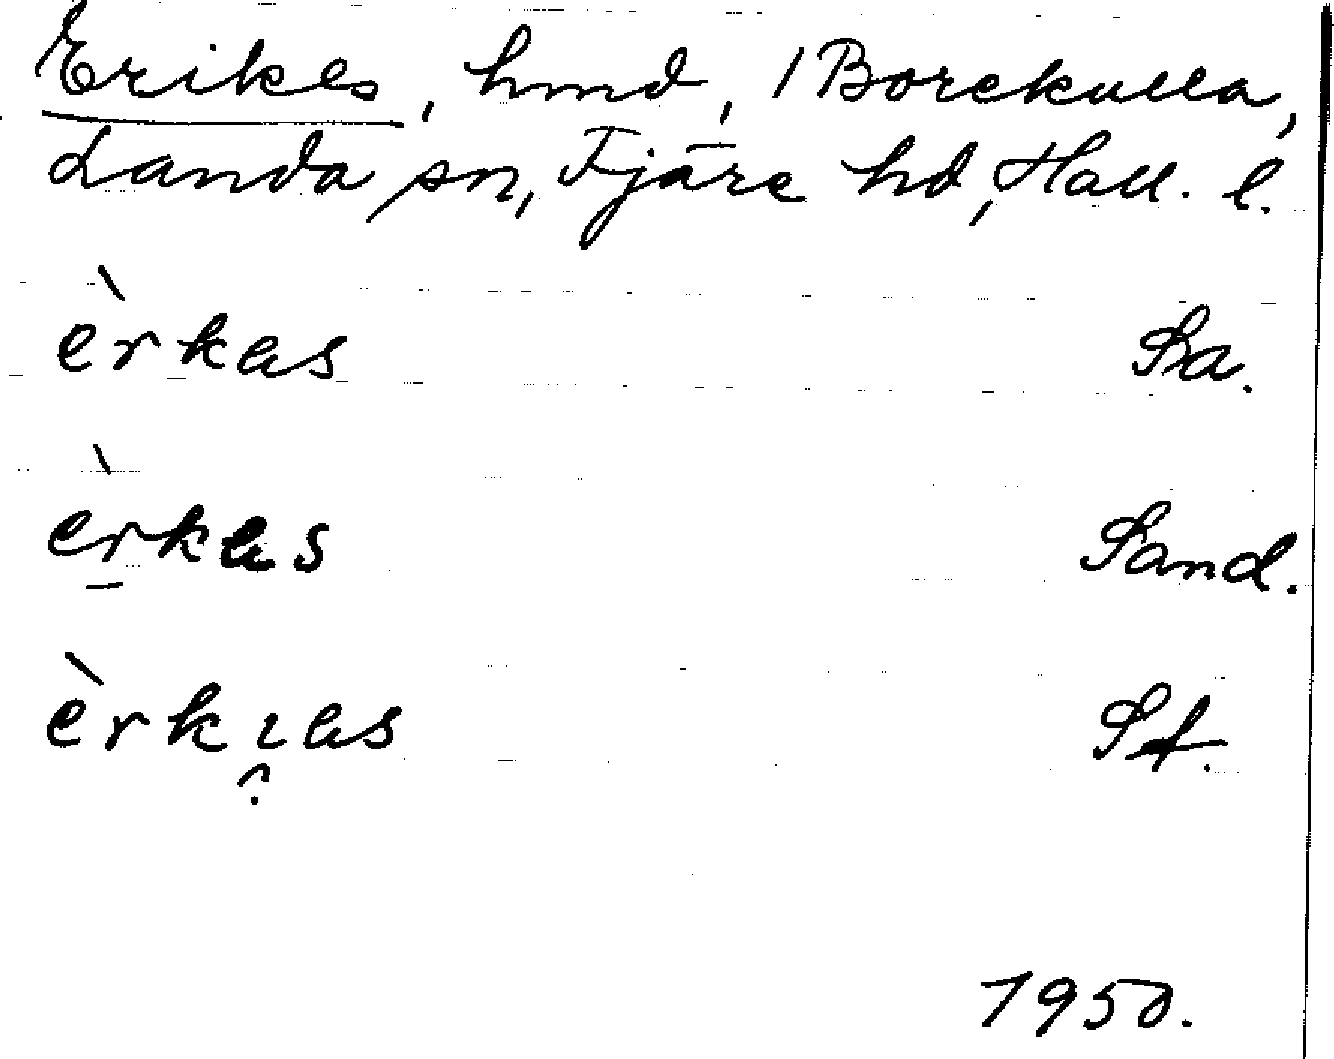 Erikes, hmd, 1 Borekulla,
Landa sn, Fjäre hd, Hall. l.
èrkas Sa.
èrkas Sand.
èrkıas St.
1950.